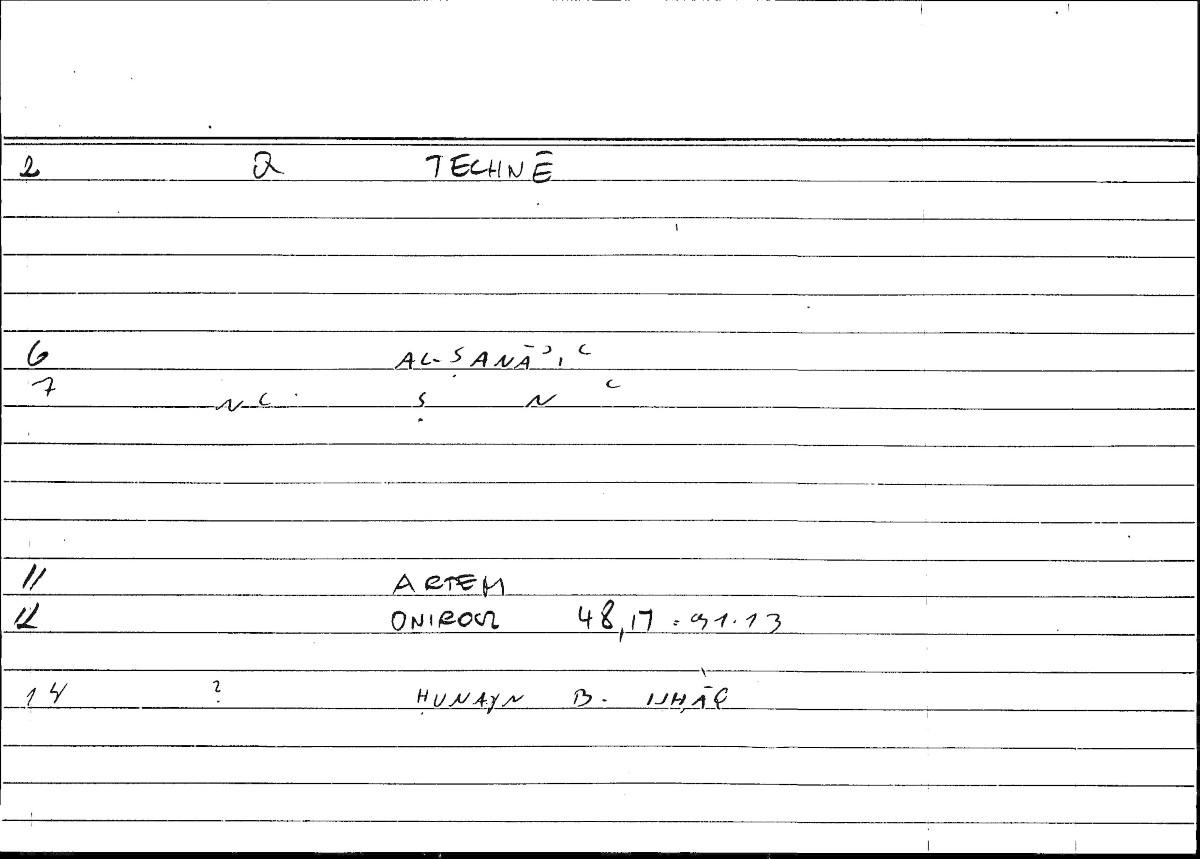 2 Q TECHNĒ
6 AL-ṢANĀʾIʿ
7 NC. Ṣ N ʿ
11 ARTEM
12 ONIROCR 48,17 = 91.13
14 ? ḤUNAYN B. ISḤĀQ